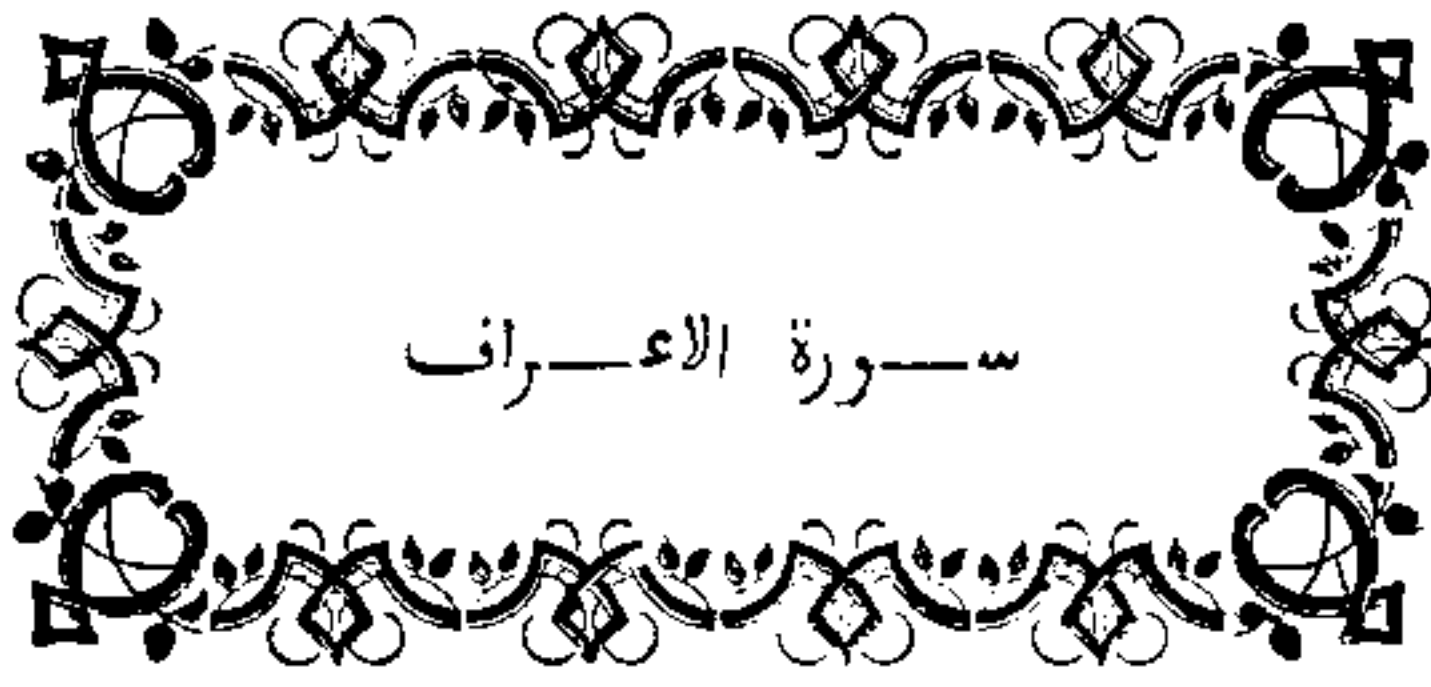 سورة الاعراف